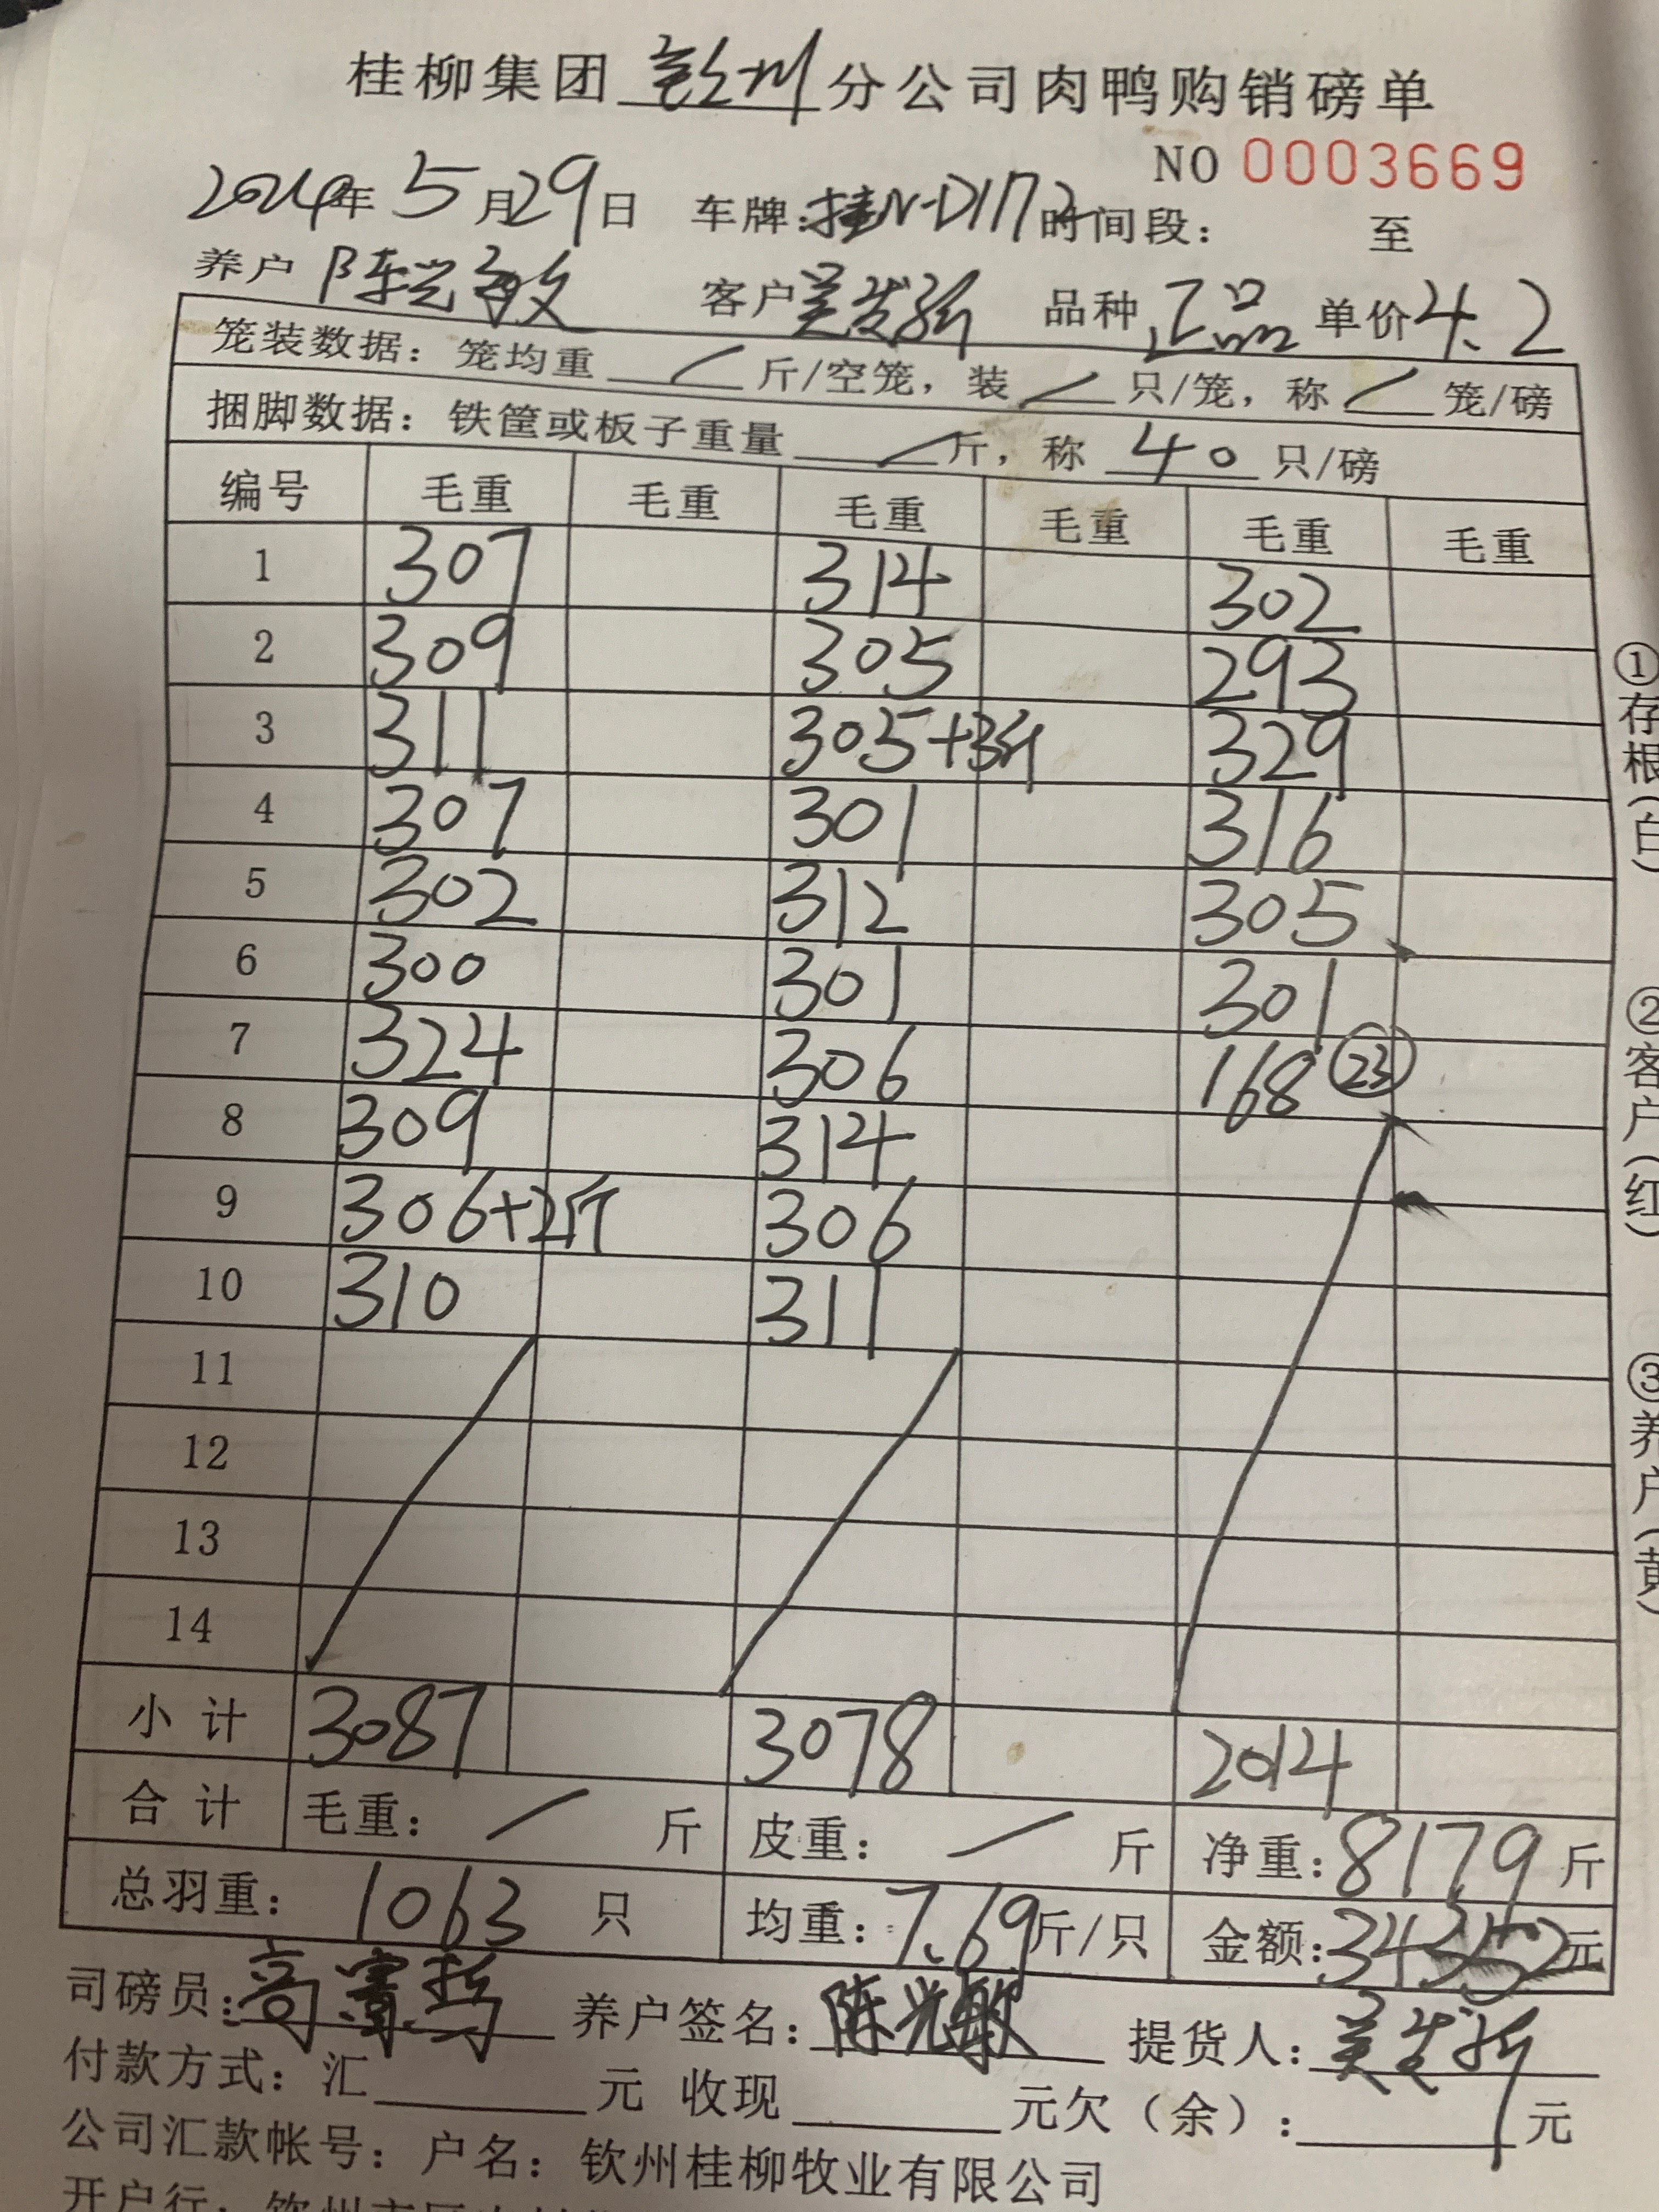 桂柳集团 钦州 分公司肉鸭购销磅单
NO 0003669
2024年 5 月 29 日 车牌:桂N-D1172 时间段: 至
养户 陈光敏 客户 吴发新 品种 正品 单价 4.2
笼装数据: 笼均重 / 斤/空笼, 装 / 只/笼, 称 / 笼/磅
捆脚数据: 铁筐或板子重量 / 斤, 称 40 只/磅
编号 毛重 毛重 毛重 毛重 毛重 毛重
1 307 314 302
2 309 305 293
3 311 305+3斤 329
4 307 301 316
5 302 312 305
6 300 301 301
7 324 306 168 ㉓
8 309 314
9 306+2斤 306
10 310 311
11
12
13
14
小 计 3087 3078 2014
合 计 毛重: / 斤 皮重: / 斤 净重: 8179 斤
总羽重: 1063 只 均重: 7.69 斤/只 金额: 34352 元
司磅员: 高 养户签名: 陈光敏 提货人: 吴发新
付款方式: 汇 元 收现 元欠(余): 元
公司汇款帐号: 户名: 钦州桂柳牧业有限公司
开户行: 钦州市
①存根(白)
②客户(红)
③养户(黄)